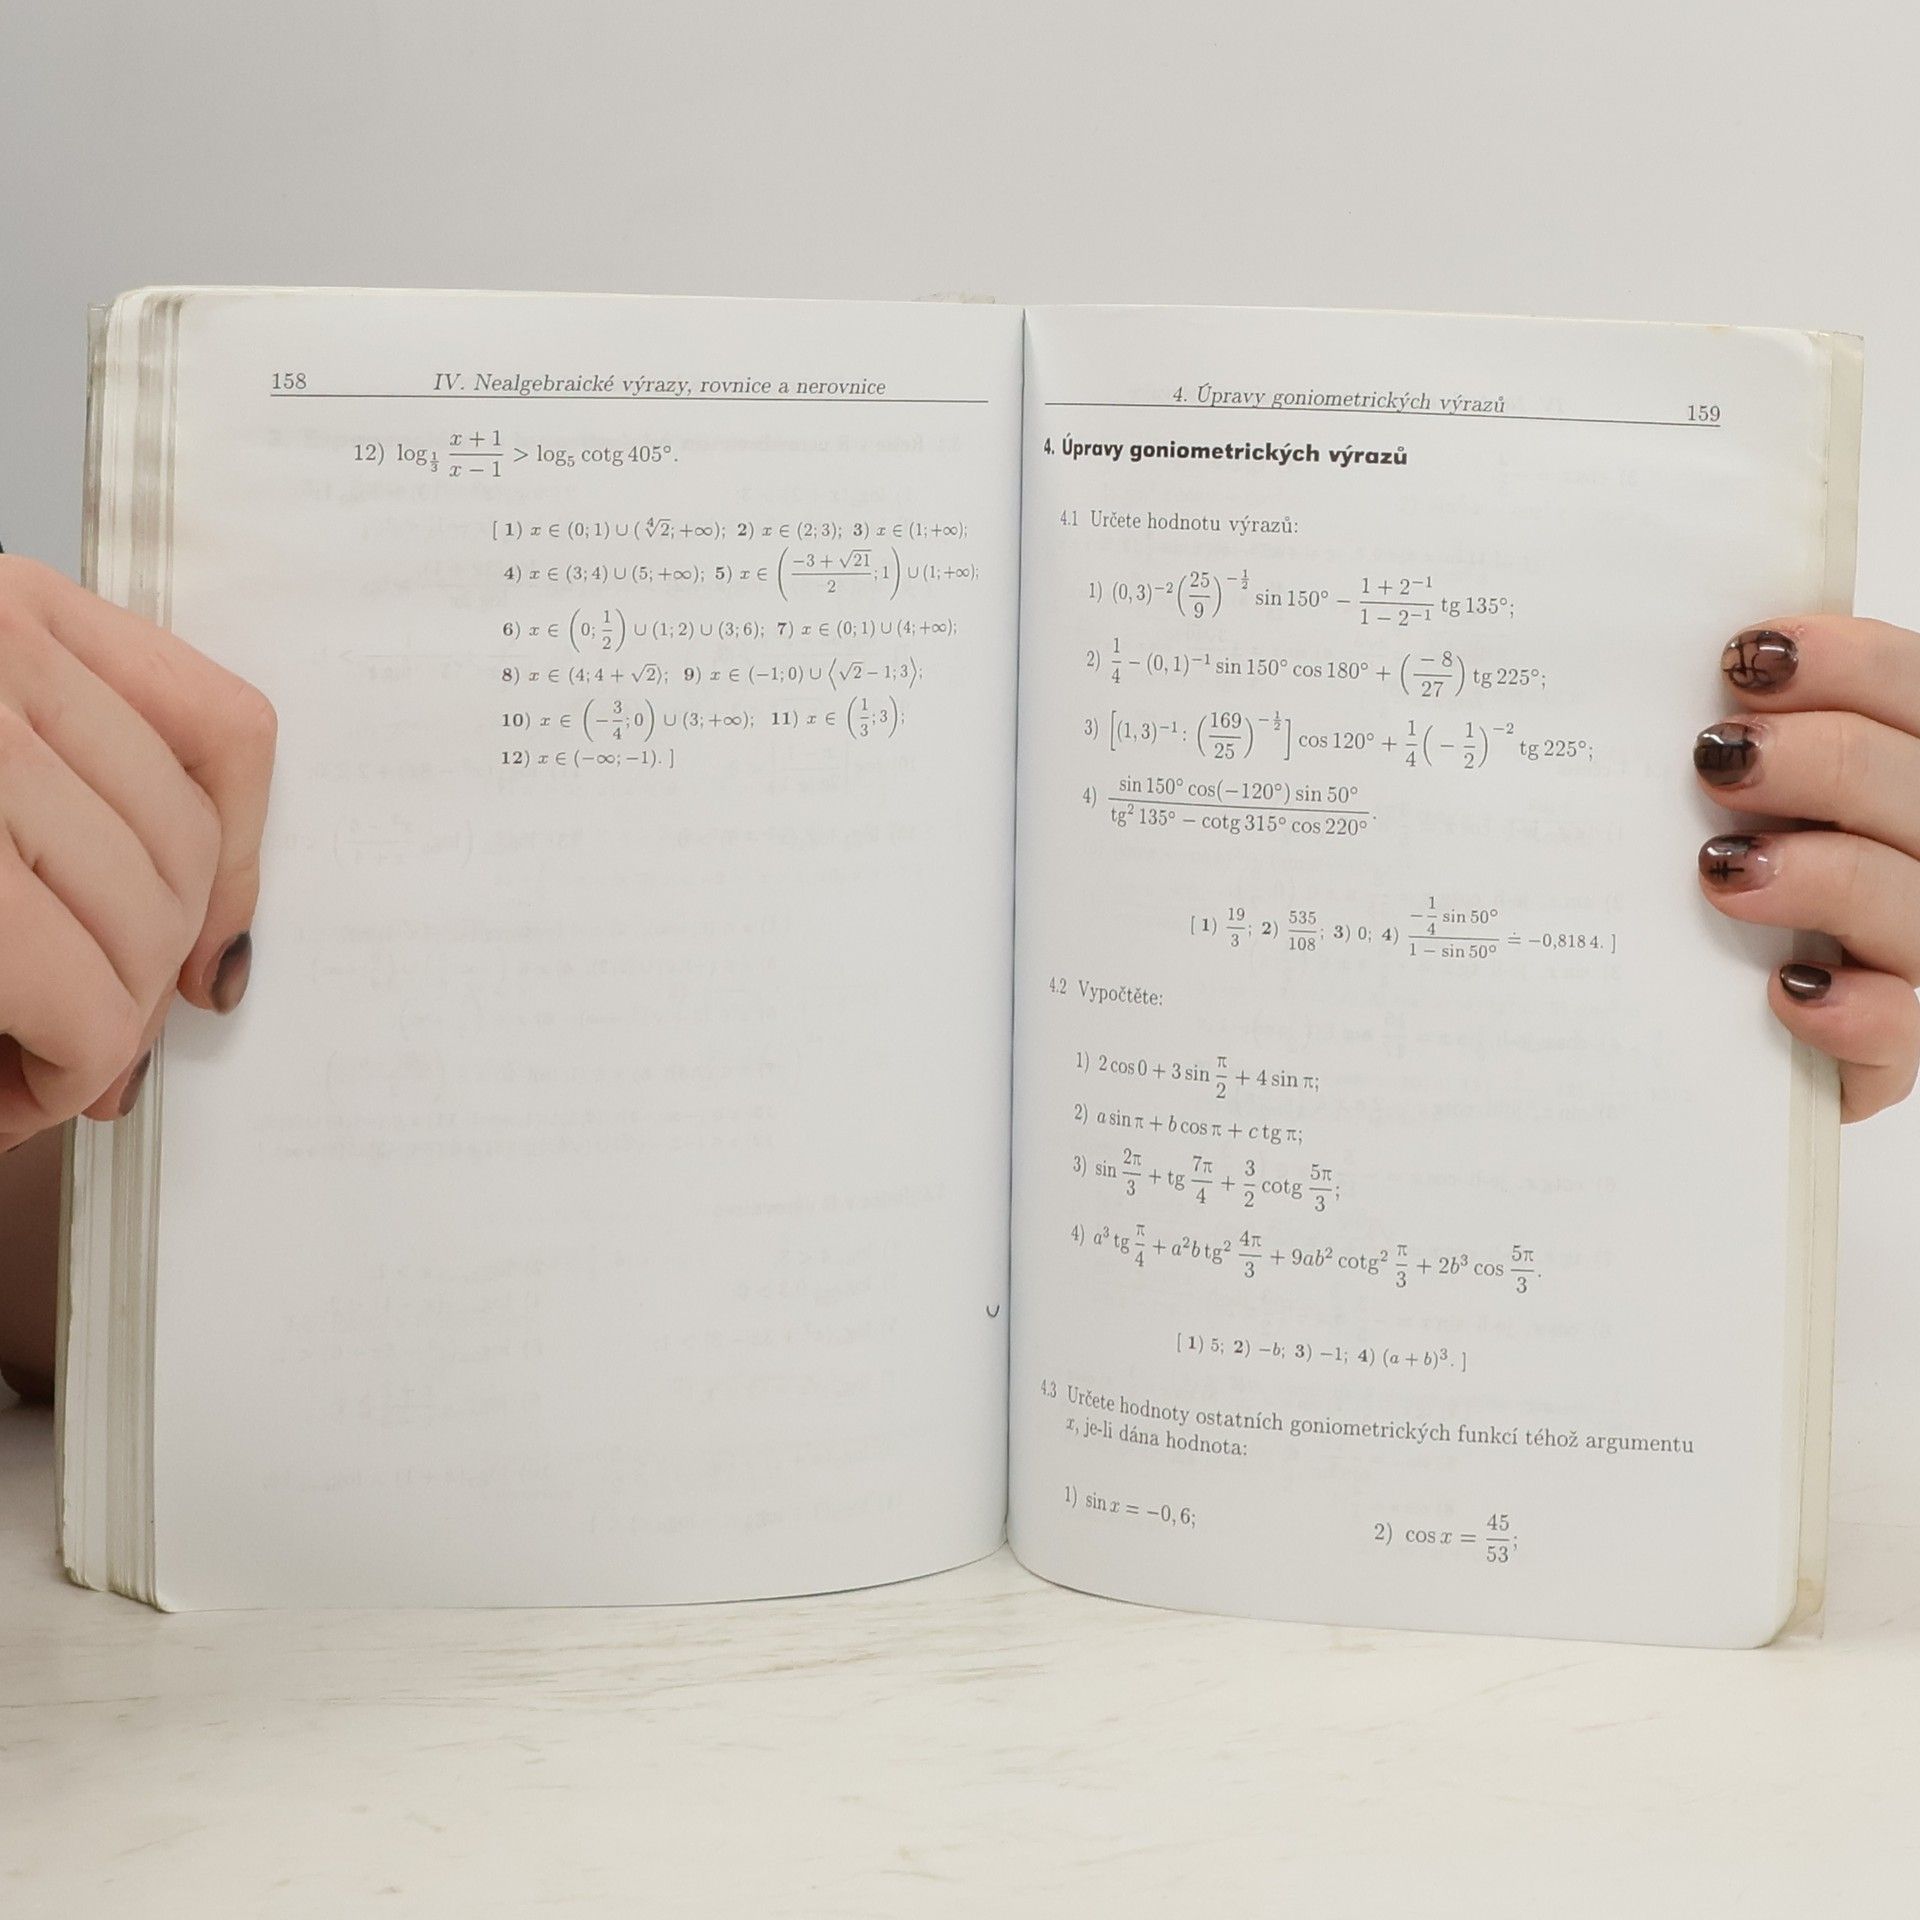 158 IV. Nealgebraické výrazy, rovnice a nerovnice
12) log_{1/3} (x + 1)/(x − 1) > log₅ cotg 405°.
[ 1) x ∈ (0; 1) ∪ (∜2; +∞); 2) x ∈ (2; 3); 3) x ∈ (1; +∞);
4) x ∈ (3; 4) ∪ (5; +∞); 5) x ∈ ((−3 + √21)/2; 1) ∪ (1; +∞);
6) x ∈ (0; 1/2) ∪ (1; 2) ∪ (3; 6); 7) x ∈ (0; 1) ∪ (4; +∞);
8) x ∈ (4; 4 + √2); 9) x ∈ (−1; 0) ∪ ⟨√2 − 1; 3⟩;
10) x ∈ (−3/4; 0) ∪ (3; +∞); 11) x ∈ (1/3; 3);
12) x ∈ (−∞; −1). ]
4. Úpravy goniometrických výrazů 159
4. Úpravy goniometrických výrazů
4.1 Určete hodnotu výrazů:
1) (0,3)⁻² (25/9)^{−1/2} sin 150° − (1 + 2⁻¹)/(1 − 2⁻¹) tg 135°;
2) 1/4 − (0,1)⁻¹ sin 150° cos 180° + (−8/27) tg 225°;
3) [(1,3)⁻¹ : (169/25)^{−1/2}] cos 120° + 1/4 (−1/2)⁻² tg 225°;
4) (sin 150° cos(−120°) sin 50°)/(tg² 135° − cotg 315° cos 220°).
[ 1) 19/3; 2) 535/108; 3) 0; 4) (−1/4 sin 50°)/(1 − sin 50°) ≐ −0,818 4. ]
4.2 Vypočtěte:
1) 2 cos 0 + 3 sin π/2 + 4 sin π;
2) a sin π + b cos π + c tg π;
3) sin 2π/3 + tg 7π/4 + 3/2 cotg 5π/3;
4) a³ tg π/4 + a²b tg² 4π/3 + 9ab² cotg² π/3 + 2b³ cos 5π/3.
[ 1) 5; 2) −b; 3) −1; 4) (a + b)³. ]
4.3 Určete hodnoty ostatních goniometrických funkcí téhož argumentu
x, je-li dána hodnota:
1) sin x = −0,6; 2) cos x = 45/53;